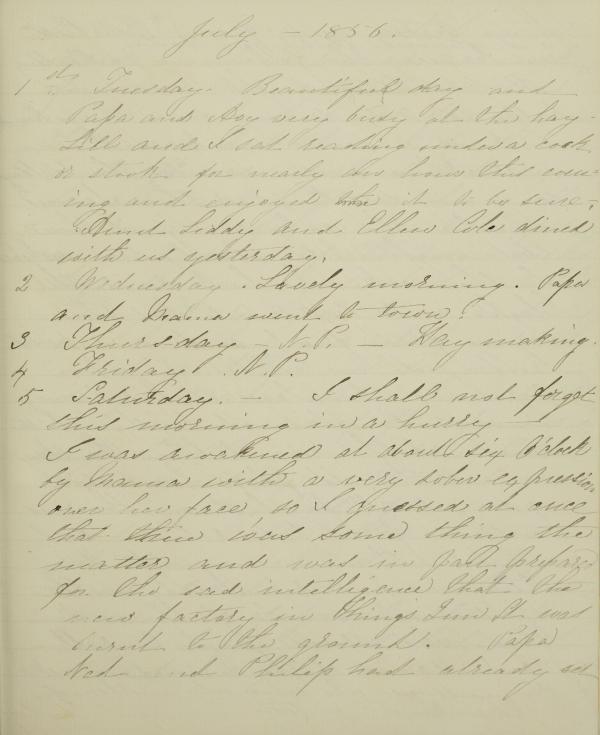 July - 1856.
1st. Tuesday. Beautiful day and
Papa and Aoy very busy at the hay -
Lill and I sat reading under a cock
or stook for nearly an hour this even-
ing and enjoyed it to be sure.
Aunt Liddy and Ellen Cole dined
with us yesterday.
2 Wednesday. Lovely morning. Papa
and Mama went to town.
3 Thursday - N.P. - Hay making.
4 Friday. N.P.
5 Saturday. - I shall not forget
this morning in a hurry -
I was awakened at about six O'clock
by Mama with a very sober expression
over her face so I guessed at once
that there was some thing the
matter and was in part prepared
for the sad intelligence that the
new factory in St was
burnt to the ground. Papa
Ned and Philip had already set